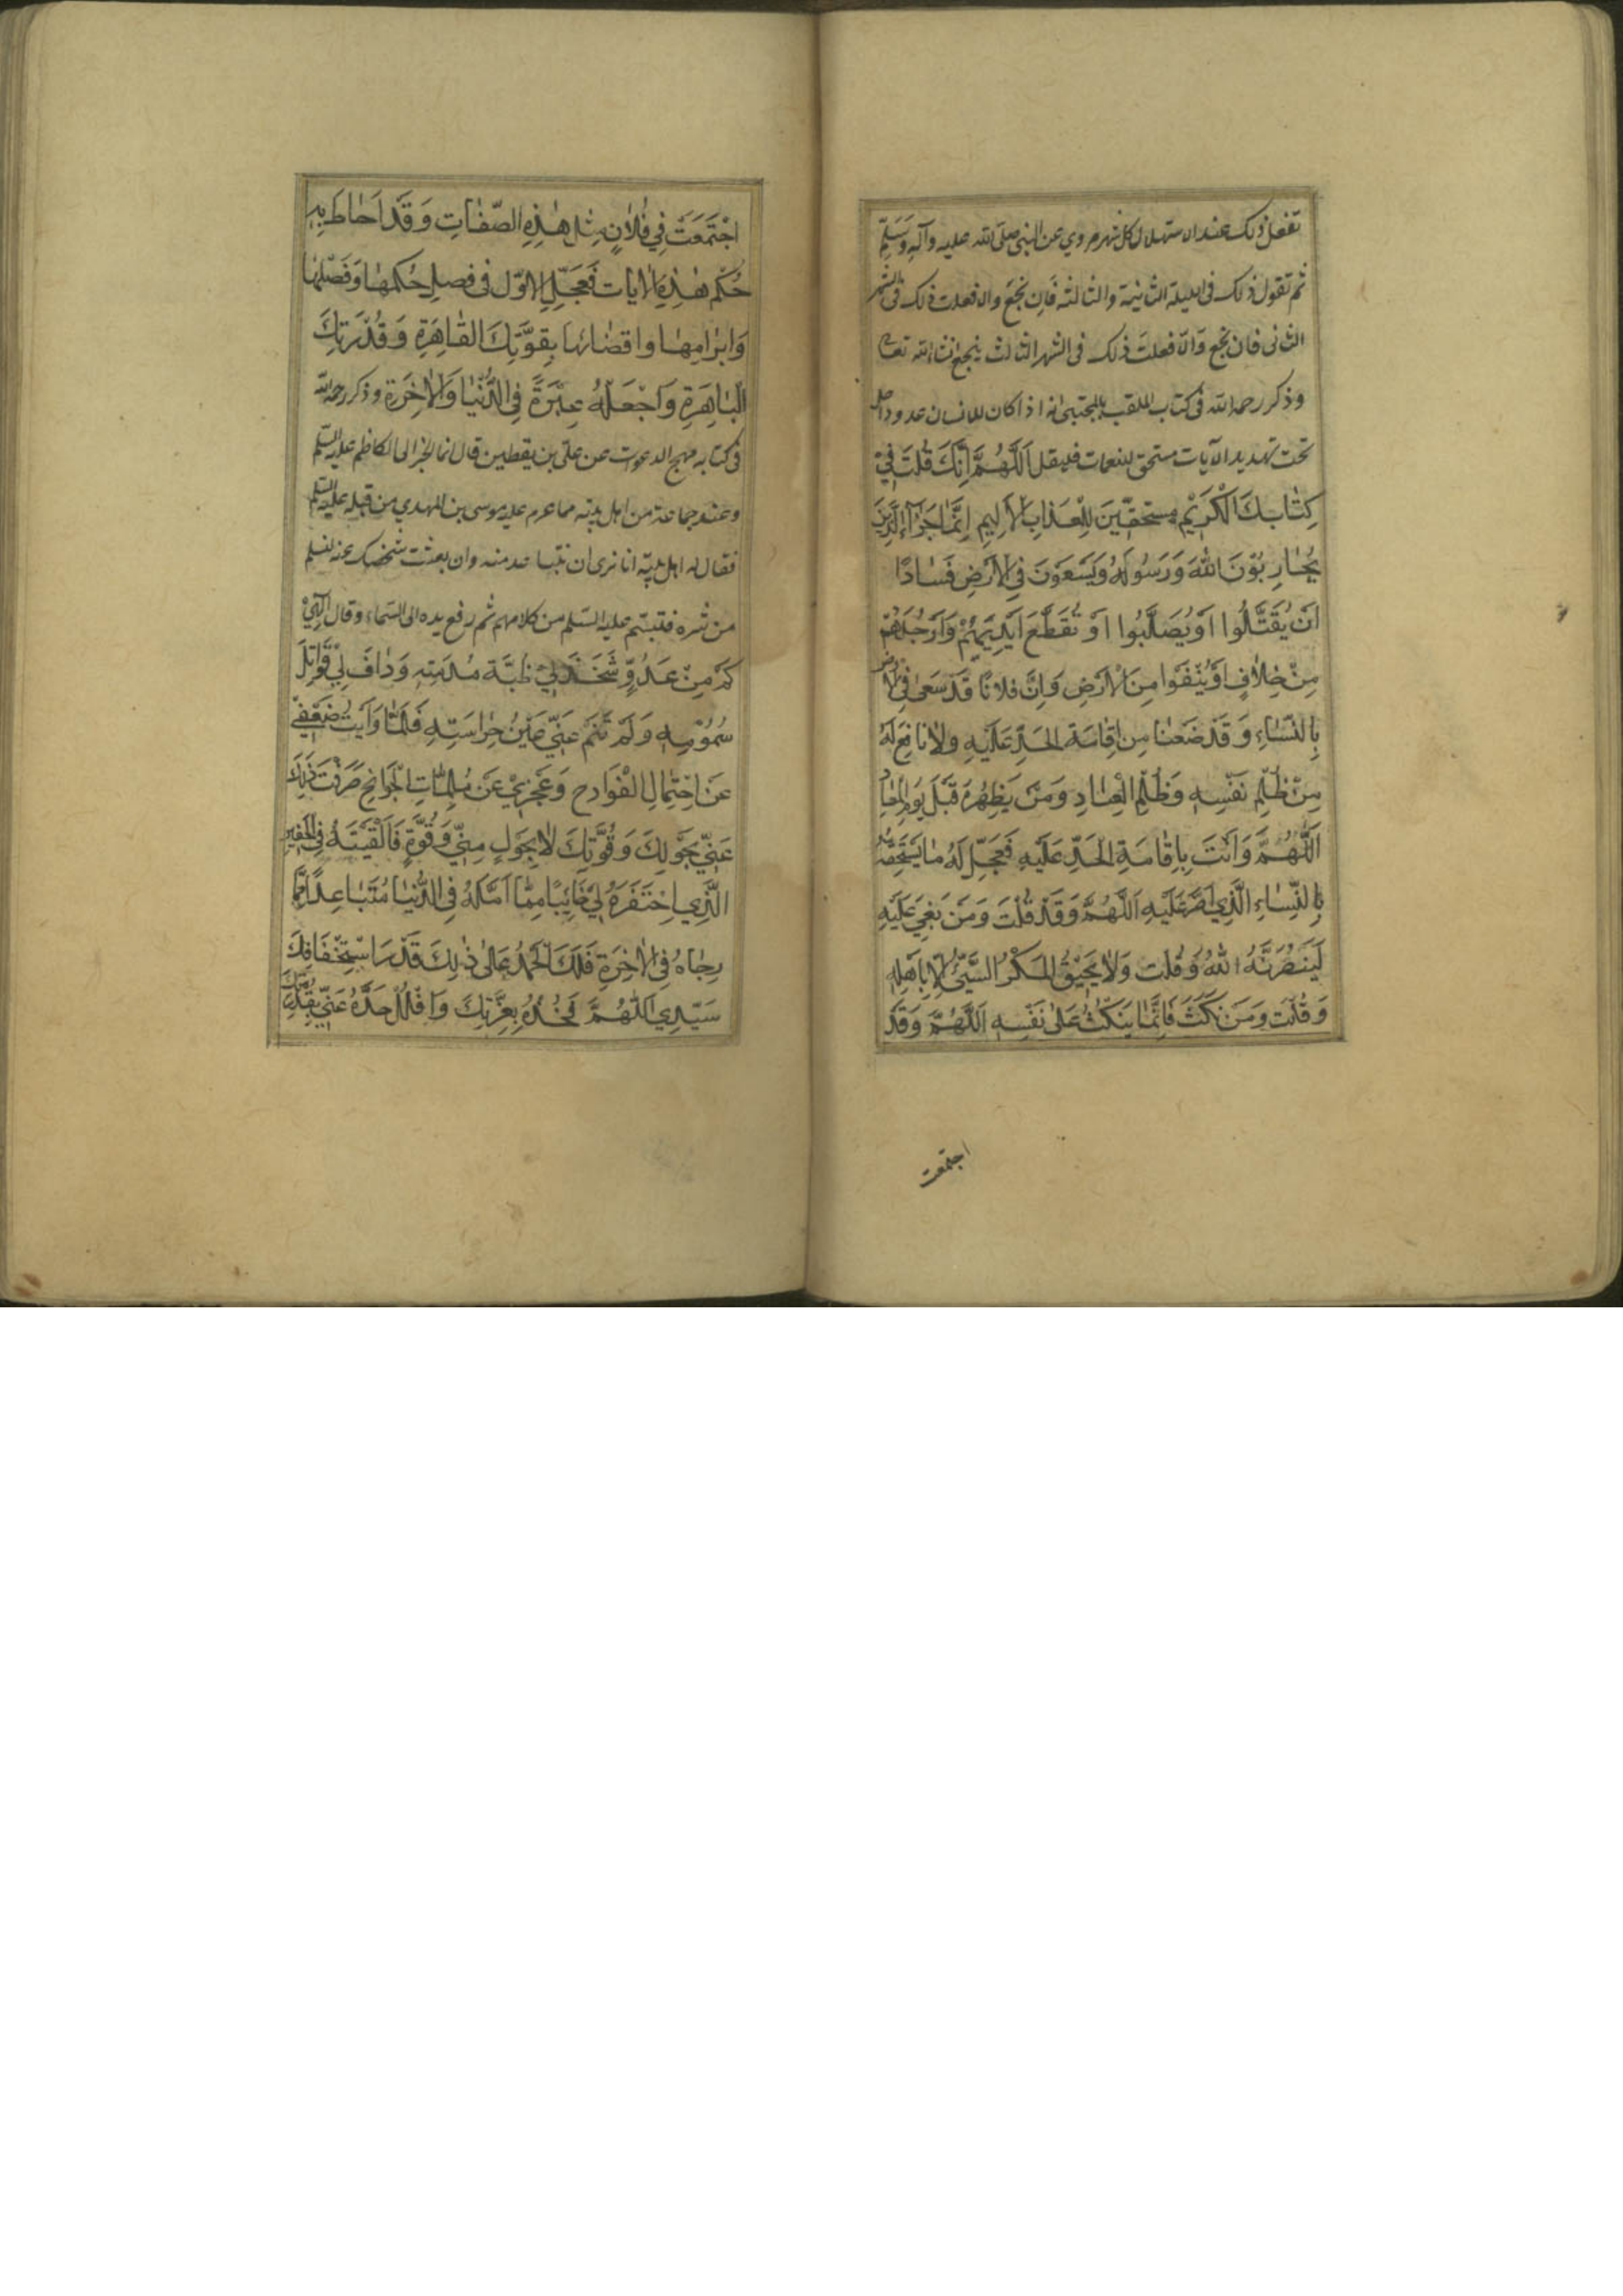 تفعل ذلك عند استهلال كل شهر مروي عن النبي صلى الله عليه وآله وسلم
ثم تقول ذلك في الليلة الثانية والثالثة فان نجع والا فعلت ذلك في الشهر
الثاني فان نجع والا فعلت ذلك في الشهر الثالث ينجع انشاء الله تعالى
وذكر رحمه الله في كتاب الملقب بالمجتبى انه اذا كان للانسان عدو داخل
تحت تهديد الآيات مستحق للنعمات فليقل اَللّٰهُمَّ اِنَّكَ قُلْتَ فِي
كِتٰابِكَ الْكَرِيْمِ مستحقّينَ لِلْعَذٰابِ الْاَلِيمِ اِنَّمٰا جَزٰآءُ الَّذِينَ
يُحٰارِبُوْنَ اللهَ وَرَسُولَهُ وَيَسْعَوْنَ فِي الْاَرْضِ فَسٰادًا
اَنْ يُقَتَّلُوا اَوْ يُصَلَّبُوا اَوْ تُقَطَّعَ اَيْدِيْهِمْ وَاَرْجُلُهُمْ
مِنْ خِلٰافٍ اَوْ يُنْفَوْا مِنَ الْاَرْضِ وَاِنَّ فلانًا قَدْ سَعىٰ فِي الْاَرْضِ
بِالفَسٰاءِ وَقَدْ ضَعُفْنٰا مِنْ اِقٰامَةِ الْحَدِّ عَلَيْهِ وَلا نافِعَ لَهُ
مِنْ ظُلْمِ نَفْسِهِ وَظُلْمِ الْعِبٰادِ وَمَنْ يَظْهَرُهُ قَبْلَ يَوْمِ الْمَعٰادِ
اَللّٰهُمَّ وَاَنْتَ بِاِقٰامَةِ الْحَدِّ عَلَيْهِ فَعَجِّلْ لَهُ مٰا يَسْتَحِقُّهُ
الَّذِي اَصَرَّ عَلَيْهِ اَللّٰهُمَّ وَقَدْ قُلْتَ وَمَنْ بُغِيَ عَلَيْهِ
لَيَنْصُرَنَّهُ اللهُ وَقُلْتَ وَلٰا يَحِيْقُ الْمَكْرُ السَّيِّئُ اِلّٰا بِاَهْلِهِ
وَقُلْتَ وَمَنْ نَكَثَ فَاِنَّمٰا يَنْكُثُ عَلىٰ نَفْسِهِ اَللّٰهُمَّ وَقَدْ
اجتمعت
اجْتَمَعَتْ فِي فُلٰانٍ مِثلُ هٰذِهِ الصِّفٰاتِ وَقَدْ اَحٰاطَ بِهِ
حُكْمُ هٰذِهِ الْاٰيٰاتِ فَعَجِّلِ الاوّل فى فصلِ حُكمهٰا وَفَصْلِهٰا
وَابْرٰامِهٰا وامْضٰائِهٰا بِقوَّتِكَ القٰاهِرَةِ وَقُدْرَتِكَ
الْبٰاهِرَةِ وَاجْعَلْهُ عِبْرَةً فِي الدُّنْيٰا وَالْاٰخِرَةِ وذكر رحمه الله
في كتابه مهج الدعوات عن علي بن يقطين قال انما الخبر الى الكاظم عليه السلم
وعنده جماعة من اهل بيته مما عزم عليه موسى بن المهدي من قبله عليه السلم
فقال له اهل بيته انا نرى ان تتباعد منه وان شخصك عنه لتسلم
من شره فتبسم عليه السلم من كلامهم ثم رفع يده الى السماء وقال اِلٰهِيْ
كَمْ مِنْ عَدُوٍّ شَحَذَ لِيْ ظُبَّةَ مُديَتِهِ وَدٰافَ لِيْ قَوٰاتِلَ
سُمُوْمِهِ وَلَمْ تَنَمْ عَنِّي عَيْنُ حِرٰاسَتِهِ فَلَمّٰا رَاَيْتَ ضَعْفِي
عَنِ احْتِمٰالِ الْفَوٰادِحِ وَعَجْزِيْ عَنْ مُلِمّٰاتِ الْجَوٰائِحِ صَرَفْتَ ذٰلِكَ
عَنِّيْ بِحَوْلِكَ وَقُوَّتِكَ لٰا بِحَوْلٍ مِنِّي وَقُوَّةٍ فَاَلْقَيْتَهُ فِي الْحَفِيرِ
الَّذِي احْتَفَرَهُ لِيْ خٰائِبًا مِمّٰا اَمَّلَهُ فِي الدُّنيٰا مُتَبٰاعِدًا مِمّٰا
رجٰاهُ فِي الْاٰخِرَةِ فَلَكَ الْحَمْدُ عَلىٰ ذٰلِكَ قَدْرَ اسْتِحْقٰاقِكَ
سَيِّدِي اَللّٰهُمَّ فَخُذْهُ بِعِزَّتِكَ وَافْلُلْ حَدَّهُ عَنِّي بِقُدْرَتِكَ